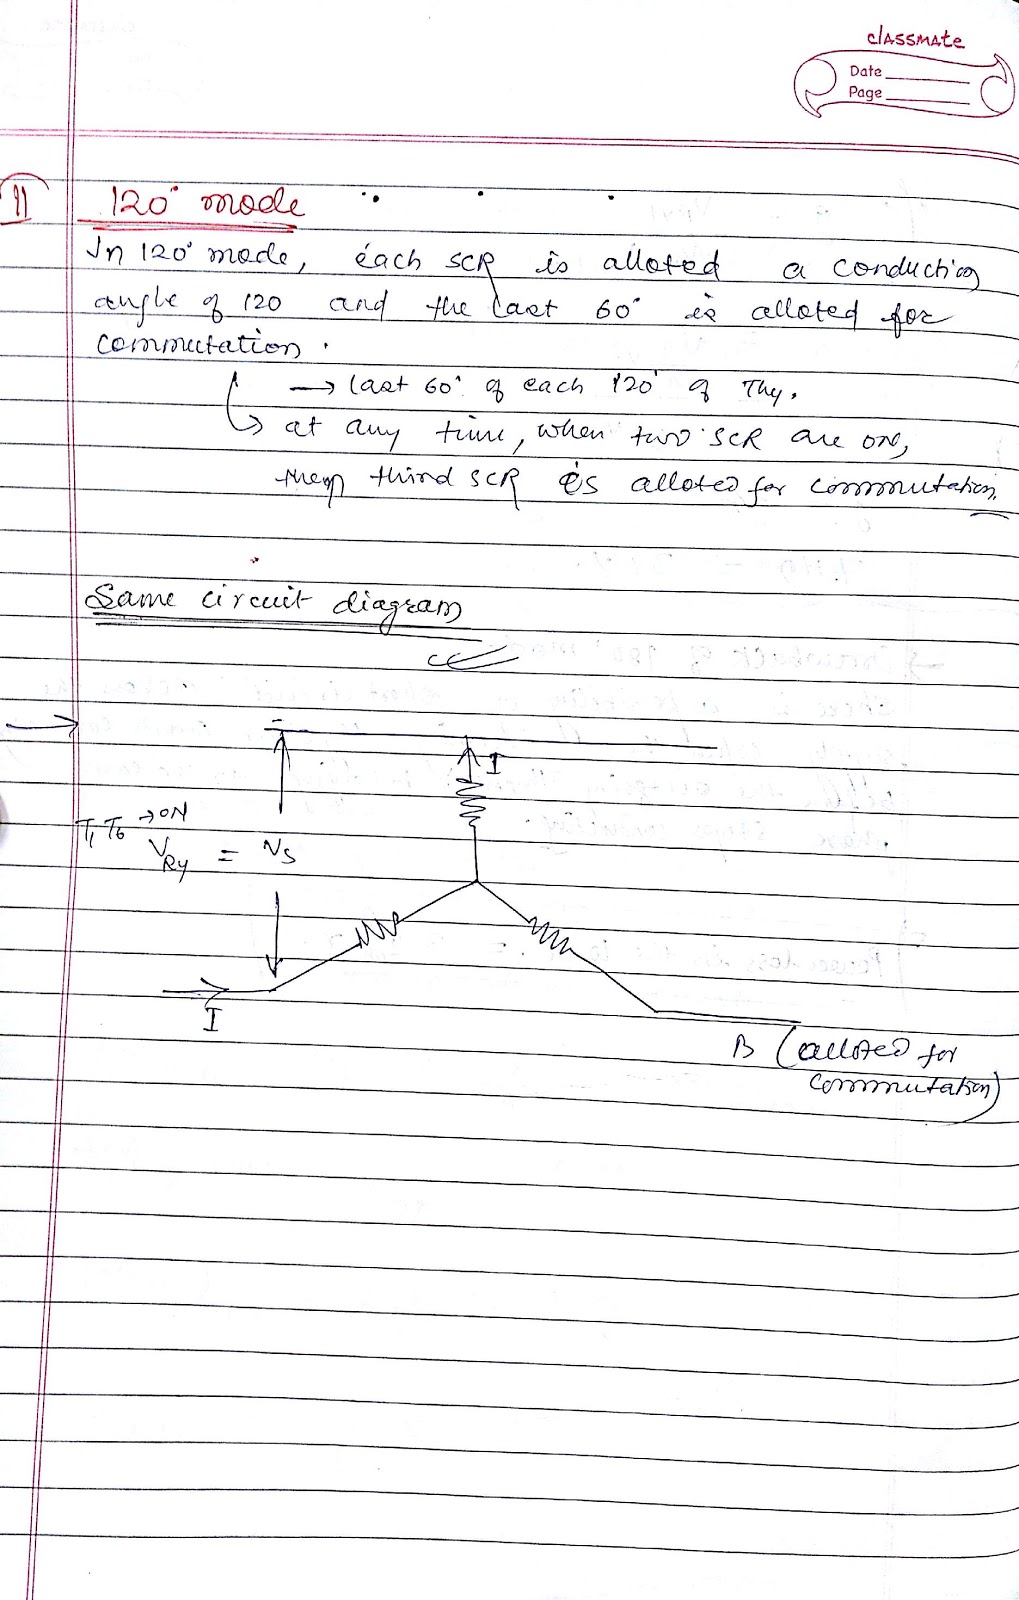 classmate
Date
Page
11 120° mode
In 120° mode, each SCR is alloted a conducting
angle of 120 and the last 60° is alloted for
commutation.
→ last 60° of each 120° of Thy.
↳ at any time, when two SCR are on,
then third SCR is alloted for commutation.
Same circuit diagram
I
T1 T6 → ON
VRy = Vs
I
B (alloted for
commutation)